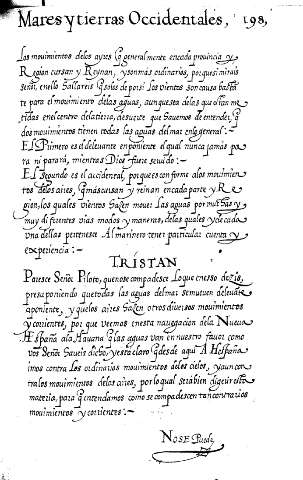 Mares y tierras Occidentales, 198,
los movimientos delos ayres lo generalmente encada prouincia y
Region cursan y Reynan, y son mas ordinarios, porque si mirais
enello hallareis q̃ solos de por si los vientos son causa basta
te para el mouimiento delas aguas, aunque sea delas que estan me
tidas enel centro dela tierra, desuerte que hauemos de entender, q̃
dos mouimientos tienen todas las aguas del mar en lo general:—
EL Primero es d̃ leuante en poniente el qual nunca jamas po
ra ni parará, mientras Dios fuere seruido:—
EL segundo es el accidental, porque es conforme alos mouimien
tos delos aires, q̃ mas cursan y reinan en cada parte y Re
gion, los quales vientos hazen mouer las aguas por muchas y
muy diferentes vias modos y maneras, delas quales y de cada
vna dellas pertenesce Al marinero tener particular cuenta y
experiencia:—
TRISTAN
Paresce Señor Piloto, que no se compadesce Lo que en esso dezis,
presaponiendo que todas las aguas del mar se mueuen de leuāte
a poniente, y que los aires hazen otros diuersos mouimientos
y corrientes, por que Veemos en esta nauegacion dela Nueua
Hespaña ala Hauana q̃ las aguas van en nuestro fauor como
vos Señor haueis dicho, y esta claro q̃ desde aquí A Hespaña
imos contra los ordinarios mouimientos delos cielos, y aun con
tra los mouimientos delos aires, por lo qual será bien digerir esta
materia, para q̃ entendamos como se compadescen tan contrarios
mouimientos y corrientes:—
NOSE Puede